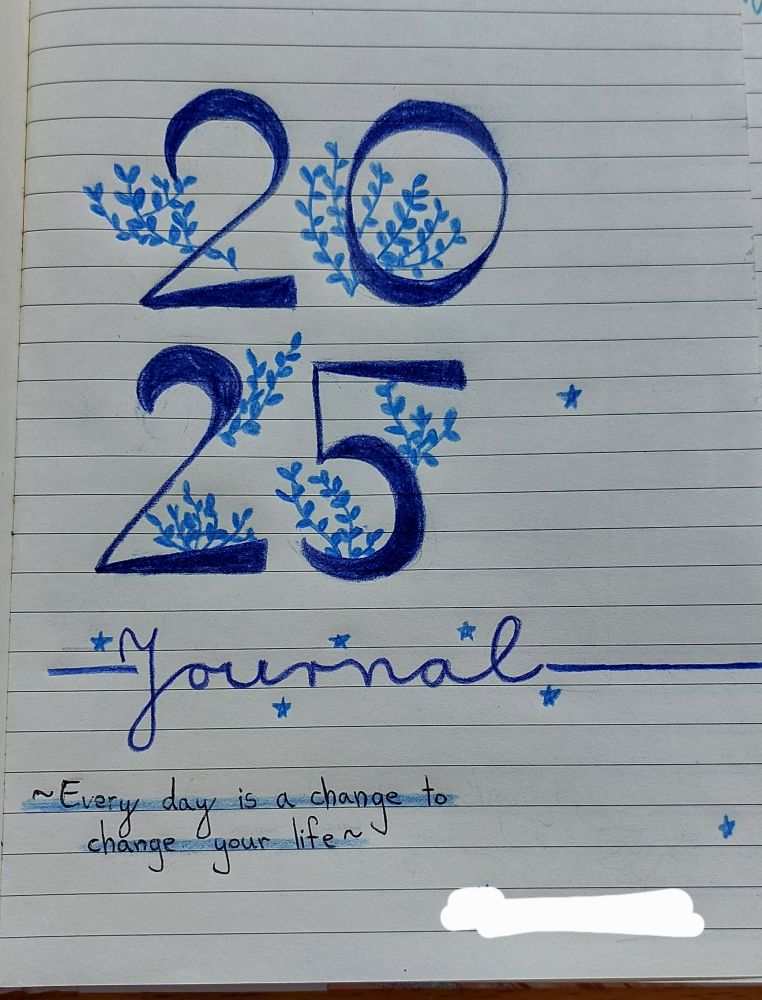 20
25
Journal
~Every day is a change to
change your life~